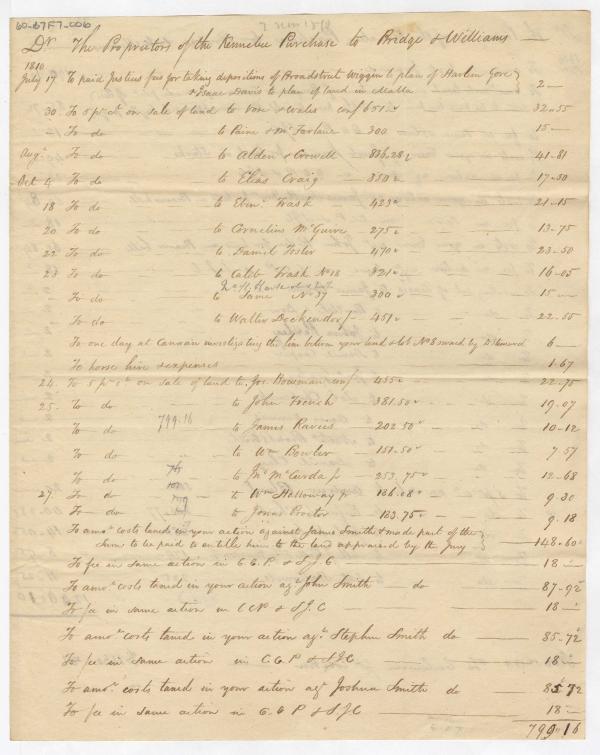 60-67F7-006
Dr. The Proprietors of the Kennebec Purchase to Bridge & Williams
1810
July 17 To paid Justices fees for taking depositions of Broadstreet Wiggin to plan of Harlem Gore
& Isaac Davis to plan of land in Malta 2 —
30 To 5 pr ct on sale of land to Vose & Wales conf 651 32-55
To do to Paine & McFarlane 300 15 —
Augt To do to Alden & Crowell 836.28 41-81
Oct 4 To do to Elias Craig 350 17-50
18 To do to Ebenr Trask 423 21-15
20 To do to Cornelius McGuire 275 13-75
22 To do to Daniel Foster 470 23-50
23 To do to Caleb Trask No 18 321 16-05
To do to Same No 37 300 15 —
To do to Walter Dockendorf 451 22-55
To one day at Canaan investigating the line between your land & lot No 8 owned by 6 —
To horse hire & expenses 1.67
24. To 5 pr ct on sale of land to Jos. Bowman conf 455 22-75
25. To do to John French 381.50 19-07
799.16
To do to James 202.50 10-12
To do to Wm Bowler 151.50 7-57
To do to Jno McCurda jr 253.75 12-68
27. To do to Wm Halloway jr 186.08 9-30
To do to Jonas Proctor 183.75 9.18
To amot costs taxed in your action against James Smith & made part of the
Sum to be paid to entitle him to the land appraised by the Jury 148-60
To fee in same action in C.C.P & S.J.C. 18 —
To amot costs taxed in your action agt John Smith do 87-92
To fee in same action in CCP & SJC 18 —
To amot costs taxed in your action agt Stephen Smith do 85-72
To fee in same action in C.C.P & SJC 18 —
To amot costs taxed in your action agt Joshua Smith do 85 72
To fee in same action in C.C.P & SJC 18 —
799-16